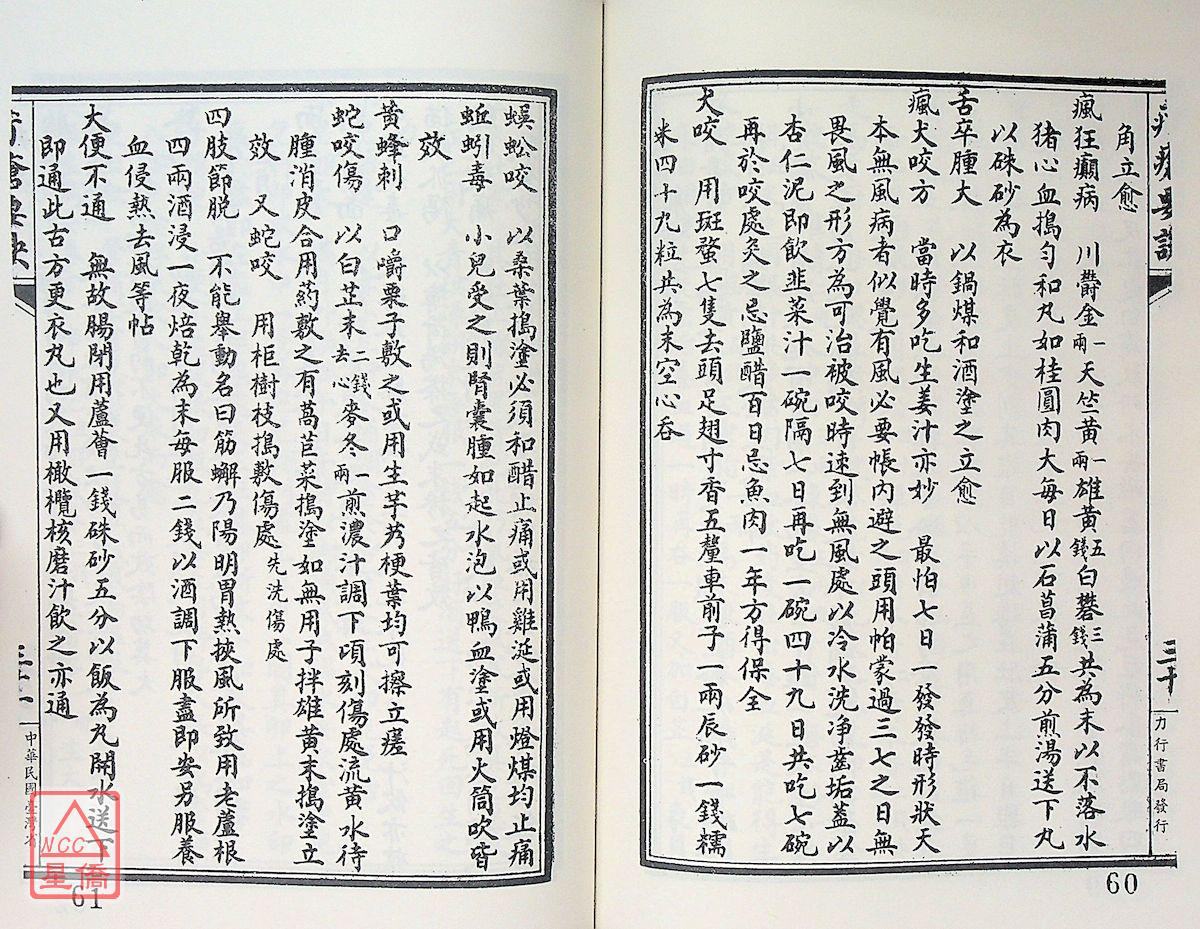 角立愈
瘋狂癲病　川欝金一兩天竺黃一兩雄黃五錢白礬三錢共為末以不落水
猪心血搗勻和丸如桂圓肉大每日以石菖蒲五分煎湯送下丸
以硃砂為衣
舌卒腫大　以鍋煤和酒塗之立愈
瘋犬咬方　當時多吃生姜汁亦妙　最怕七日一發發時形狀天
本無風病者似覺有風必要帳內避之頭用帕蒙過三七之日無
畏風之形方為可治被咬時速到無風處以冷水洗净齒垢蓋以
杏仁泥即飲韭菜汁一碗隔七日再吃一碗四十九日共吃七碗
再於咬處灸之忌鹽醋百日忌魚肉一年方得保全
犬咬　用斑蝥七隻去頭足翅寸香五釐車前子一兩辰砂一錢糯
米四十九粒共為末空心吞
三十
力行書局發行
60
蜈蚣咬　以桑葉搗塗必須和醋止痛或用雞涎或用燈煤均止痛
蚯蚓毒　小兒受之則腎囊腫如起水泡以鴨血塗或用火筒吹皆
效
黃蜂刺　口嚼粟子敷之或用生芋艿梗葉均可擦立瘥
蛇咬傷　以白芷末二錢去心麥冬一兩煎濃汁調下頃刻傷處流黃水待
腫消皮合用药敷之有萵苣菜搗塗如無用子拌雄黃末搗塗立
效　又蛇咬　用柜樹枝搗敷傷處先洗傷處
四肢節脫　不能舉動名曰筋蠏乃陽明胃熱挾風所致用老蘆根
四兩酒浸一夜焙乾為末每服二錢以酒調下服盡即安另服養
血侵熱去風等帖
大便不通　無故腸閉用蘆薈一錢硃砂五分以飯為丸開水送下
即通此古方更衣丸也又用橄欖核磨汁飲之亦通
三十一
中華民國臺灣省
61
NCC
星僑